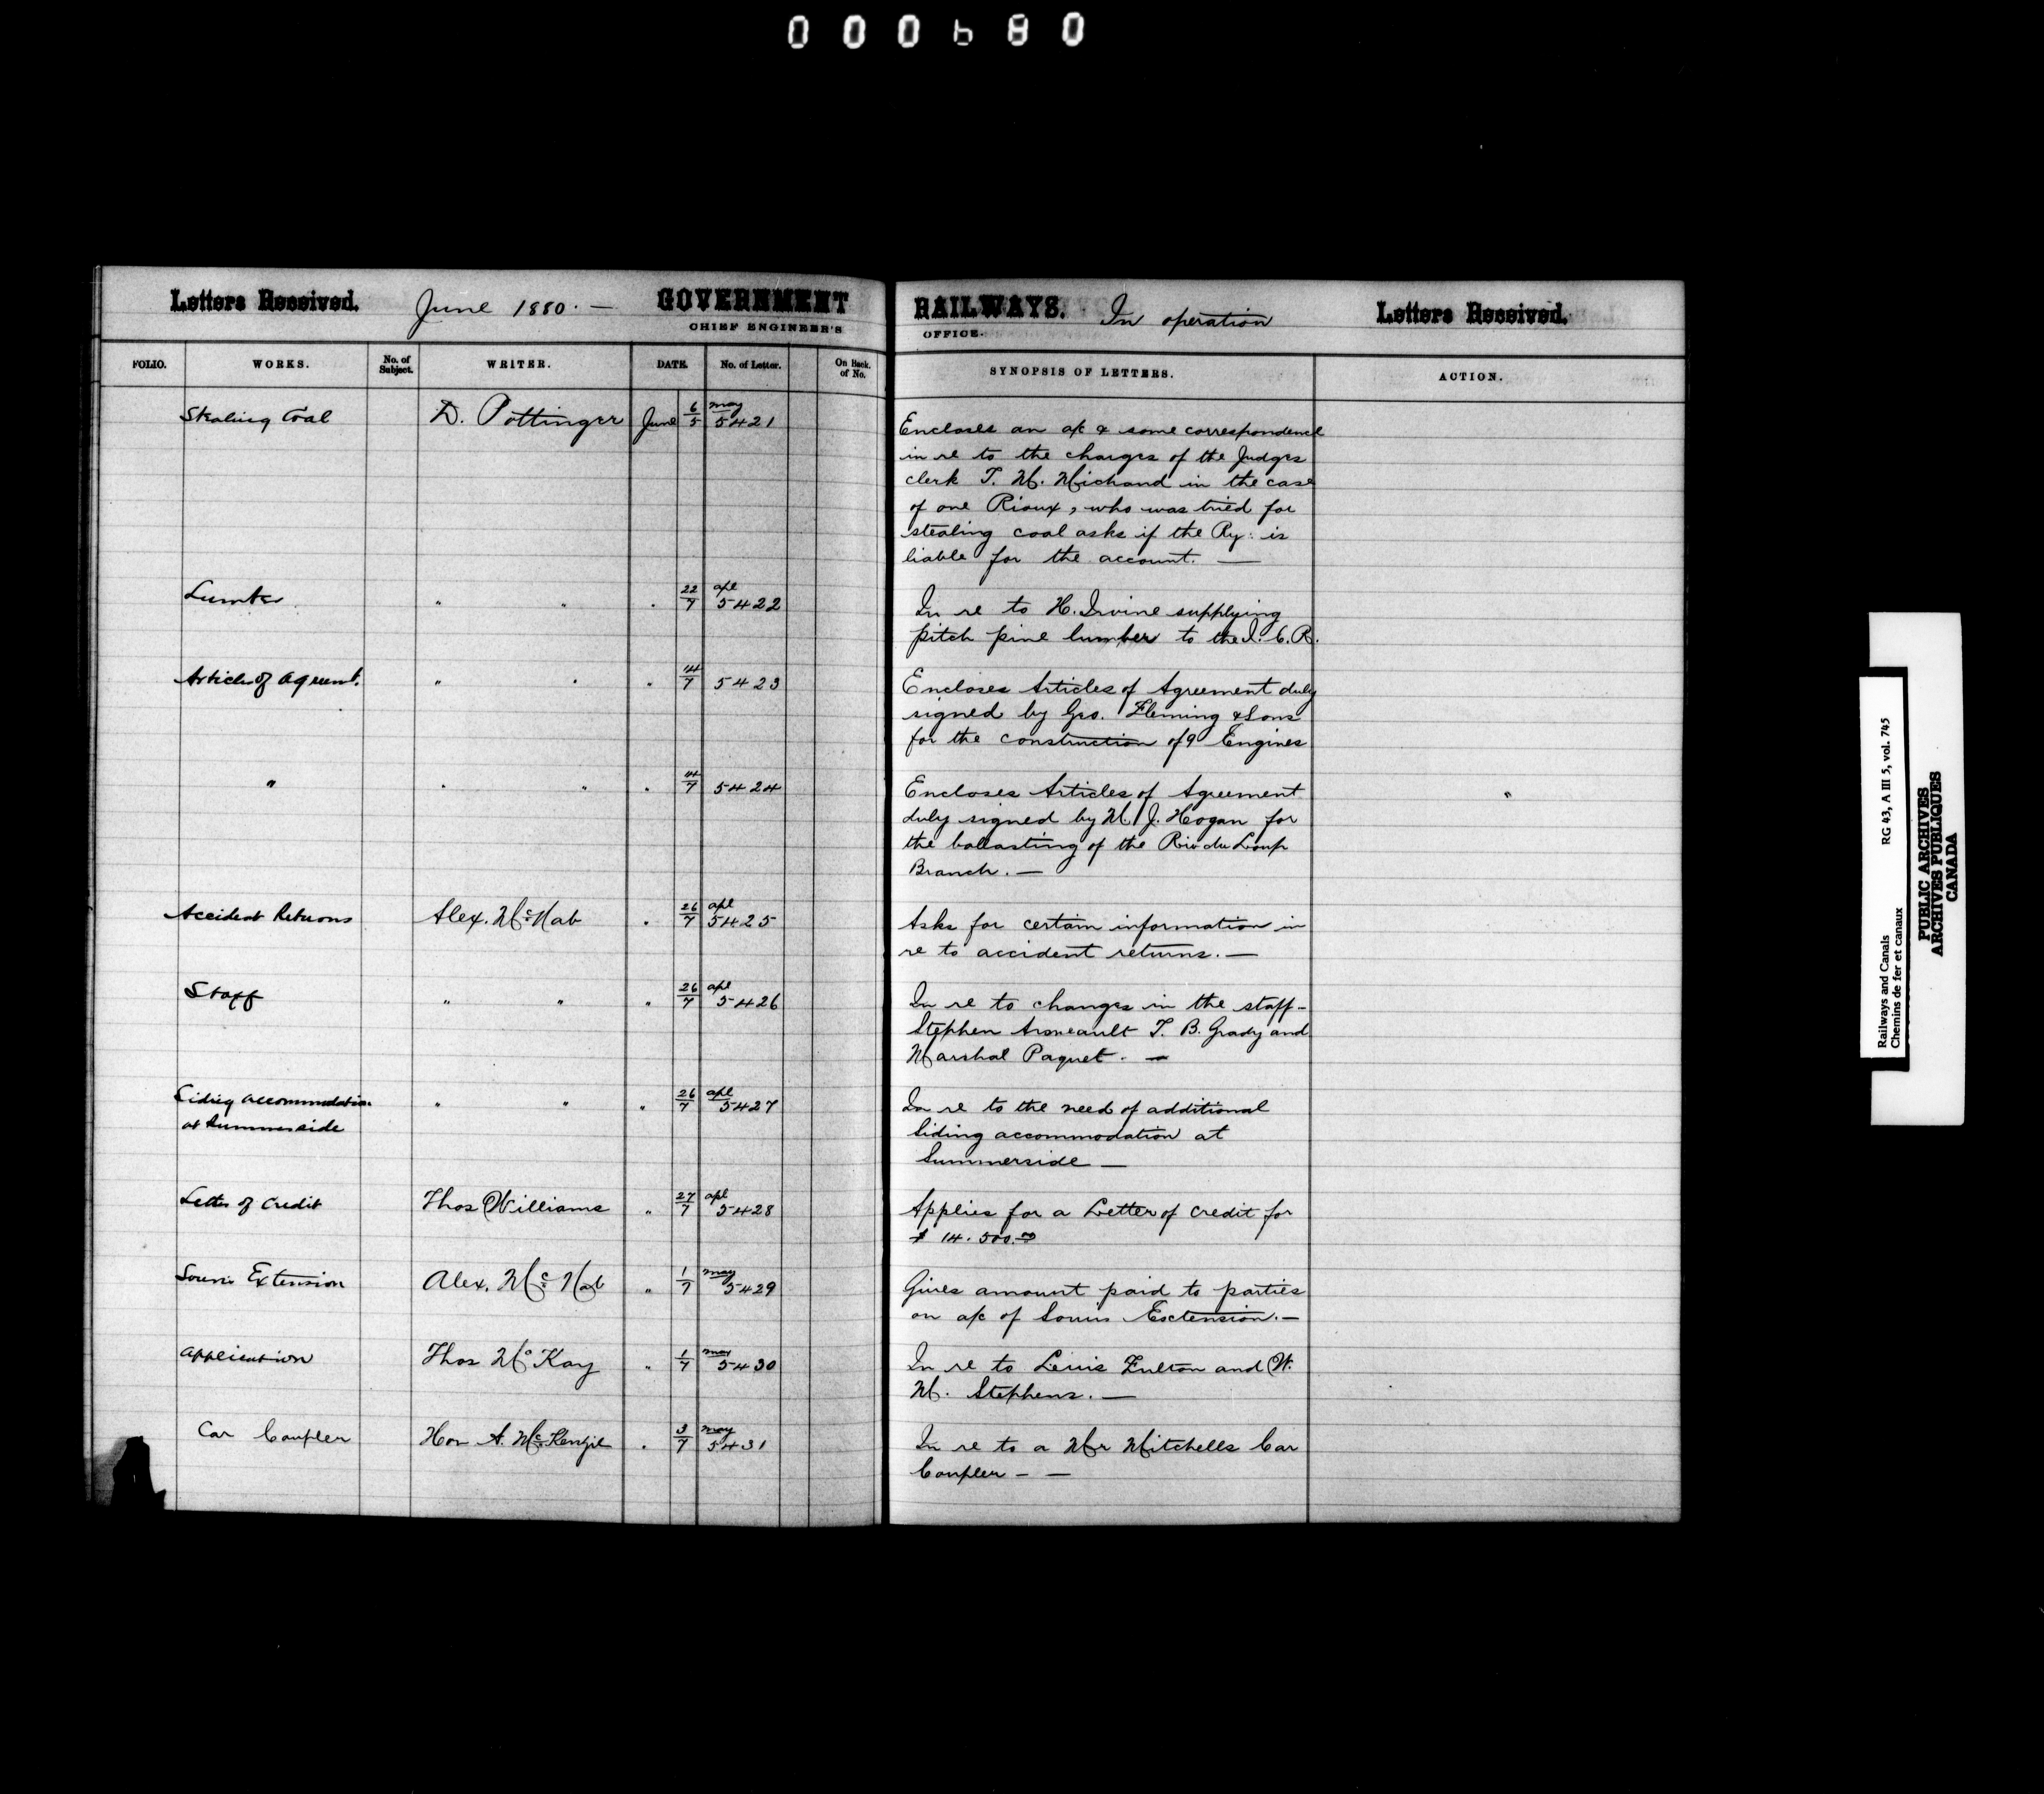 000680
Letters Received. June 1880. — GOVERNMENT
CHIEF ENGINEER'S
RAILWAYS. In operation Letters Received.
OFFICE.
FOLIO. WORKS. No. of Subject. WRITER. DATE. No. of Letter. On Back of No.
SYNOPSIS OF LETTERS. ACTION.
Stealing Coal D. Pottinger June 6/5 may 5421
Encloses an a/c & some correspondence
in re to the charges of the Judges
clerk T. M. Michaud in the case
of one Rioux, who was tried for
stealing coal asks if the Ry: is
liable for the account. —
Lumber " " " 22/7 apl 5422
In re to H. Irvine supplying
pitch pine lumber to the I. C. R.
Articles of Agreemt. " " " 14/7 5423
Encloses Articles of Agreement duly
signed by Geo. Fleming & Sons
for the construction of 9 Engines
" " " " 14/7 5424
Encloses Articles of Agreement "
duly signed by M. J. Hogan for
the ballasting of the Riv du Loup
Branch. —
Accident Returns Alex. McNab " 26/7 apl 5425
Asks for certain information in
re to accident returns. —
Staff " " " 26/7 apl 5426
In re to changes in the staff -
Stephen Arsneault T. B. Grady and
Marshal Paquet. —
Siding accommodation " " " 26/7 apl 5427
at Summerside
In re to the need of additional
Siding accommodation at
Summerside —
Letter of Credit Thos Williams " 27/7 apl 5428
Applies for a Letter of Credit for
$ 14.500.00
Souris Extension Alex. McNab " 1/7 may 5429
Gives amount paid to parties
on a/c of Souris Exctension. —
Application Thos McKay " 1/7 may 5430
In re to Lewis Fulton and W.
M. Stephens. —
Car Coupler Hon A. McKenzie " 3/7 may 5431
In re to a Mr Mitchells Car
Coupler — —
Railways and Canals RG 43, A III 5, vol. 745
Chemins de fer et canaux
PUBLIC ARCHIVES
ARCHIVES PUBLIQUES
CANADA